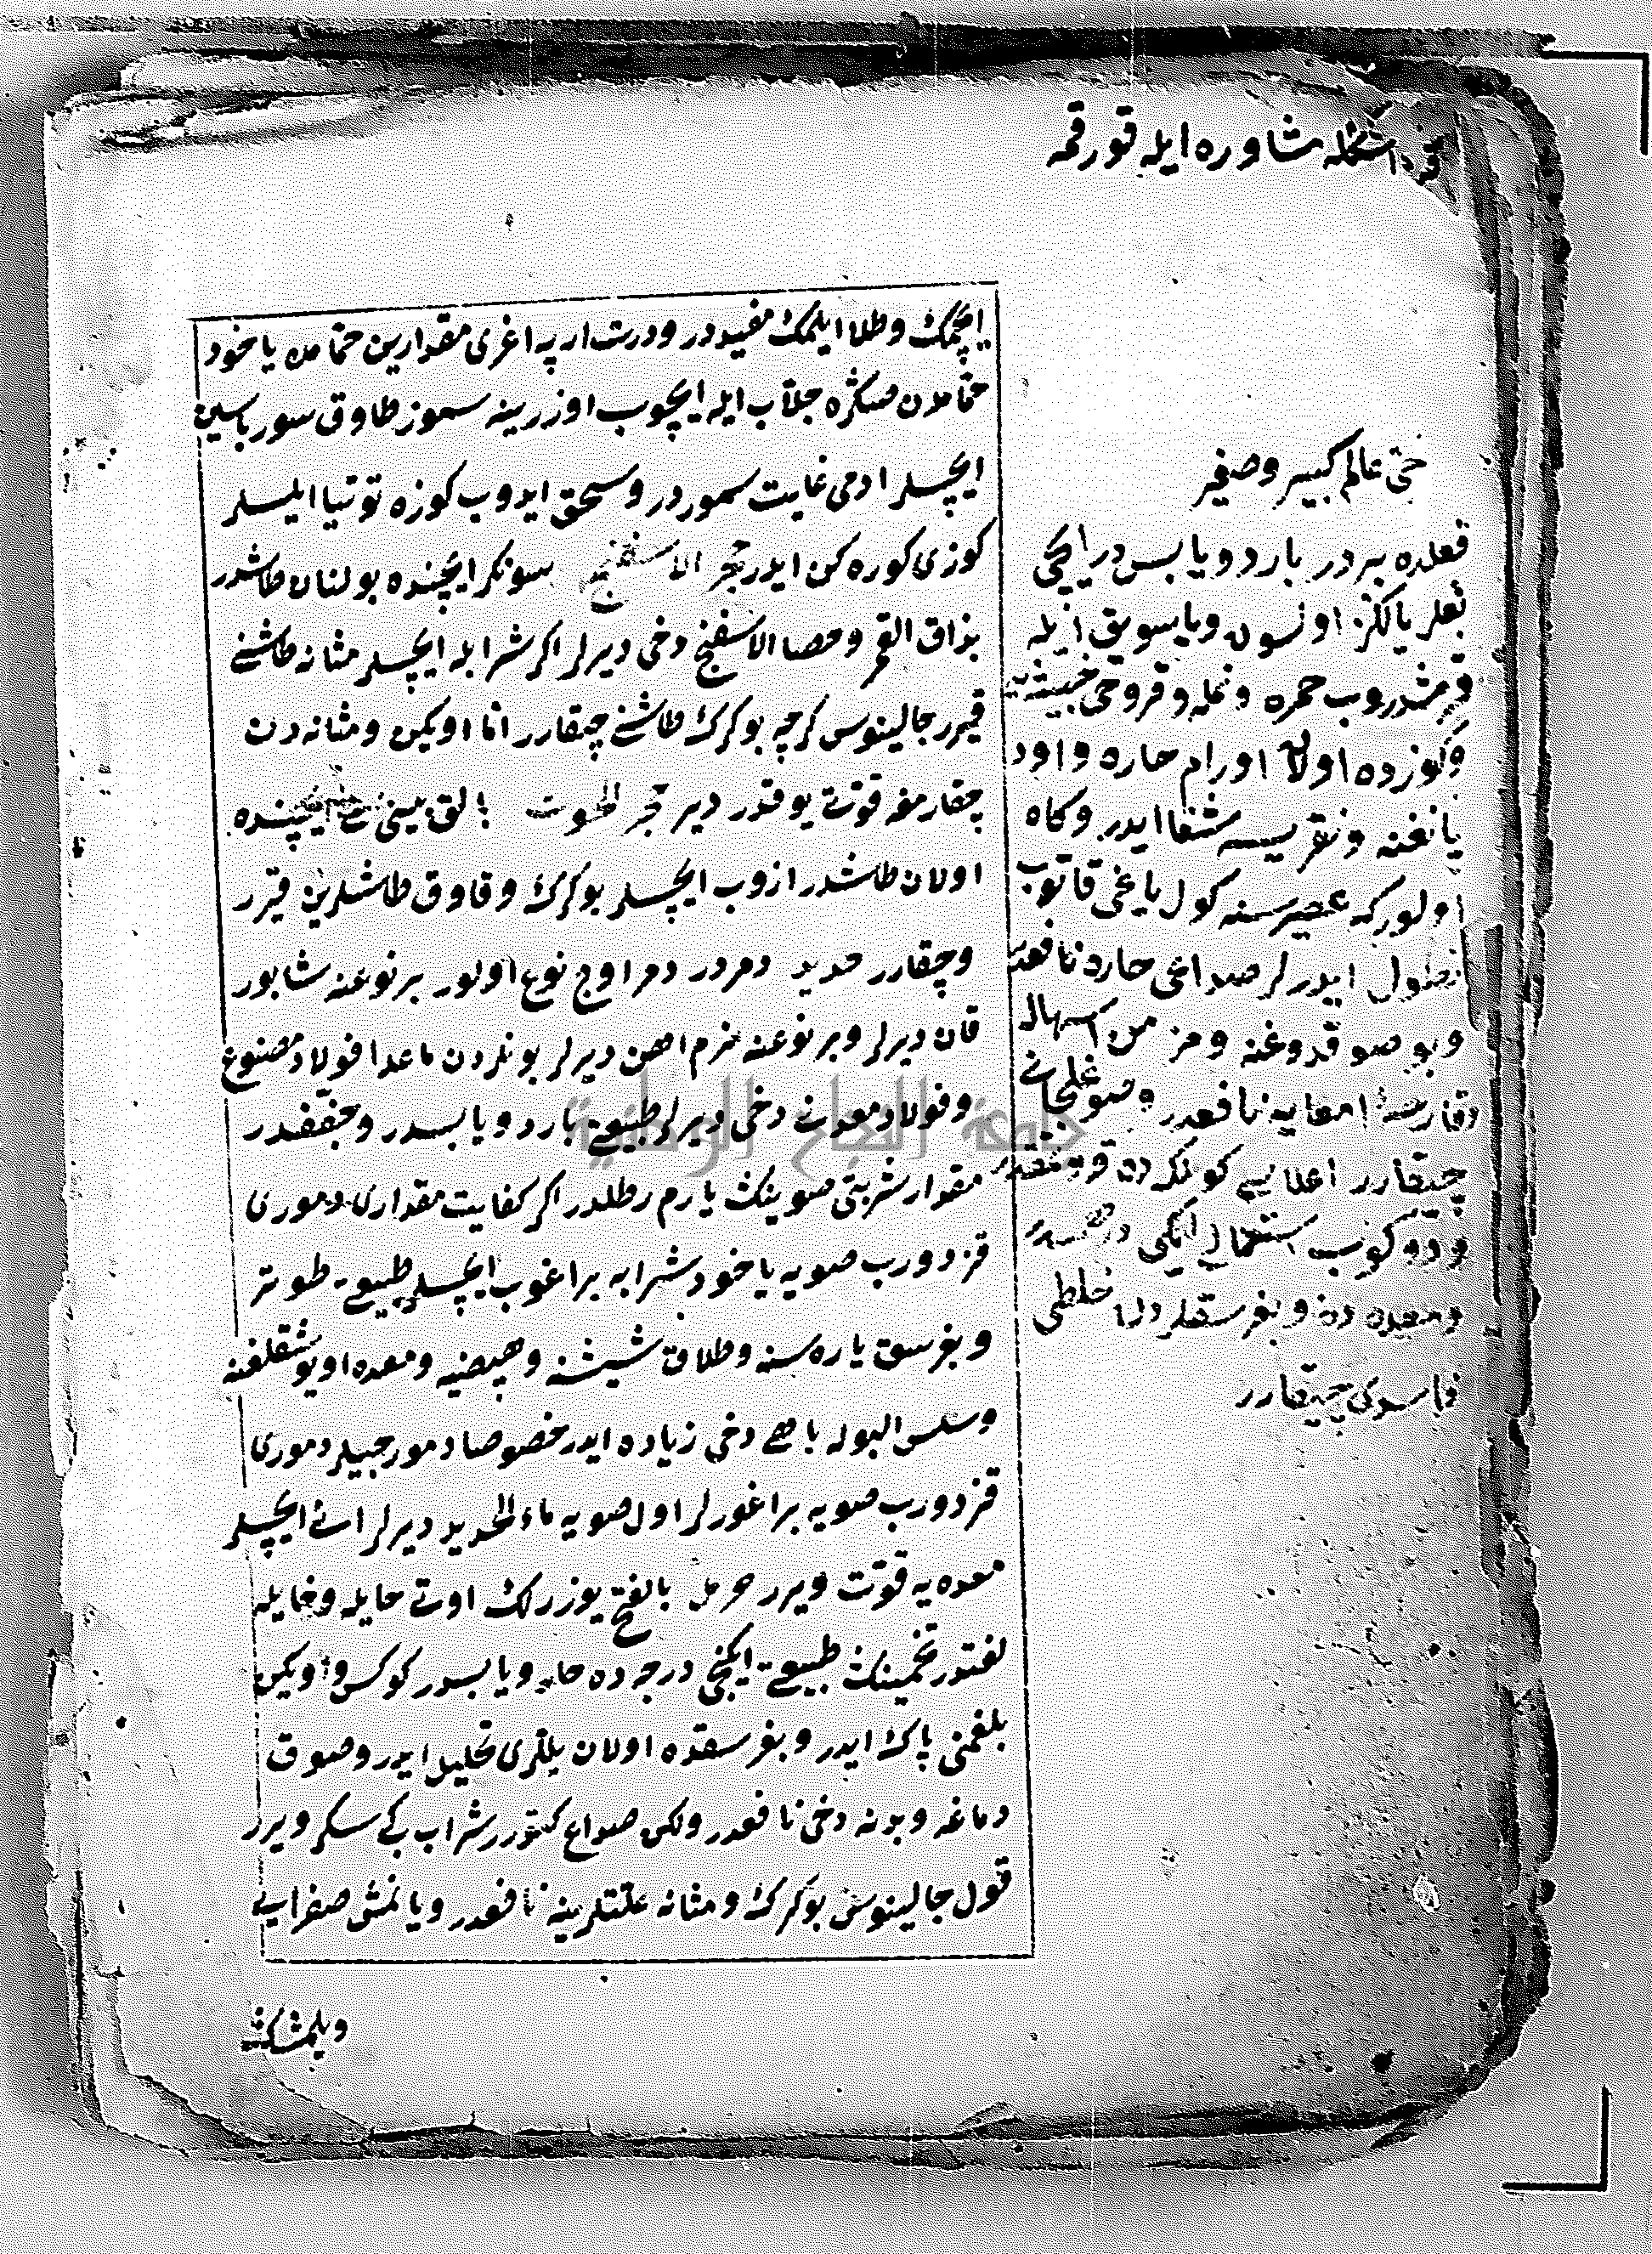 قرداشکله مشاوره ایله قورقمه
ایچمك وطلا ایلمك مفیددر ودرت ارپه اغری مقدارین حمامده یاخود
حمامدن صکره جلاب ایله ایچوب اوزرینه سموز طاوق سورباسین
ایچسلر ادمی غایت سموردر وسحق ایدوب کوزه توتیا ایلسلر
کوزی کوره کن ایدر حجر الاسفنج سونکر ایچنده بولنان طاشدر
بزاق القمر وحصا الاسفنج دخی دیرلر اکر شرابله ایچسلر مثانه طاشنی
قیرر جالینوس کرچه بوکرك طاشنی چیقارر انا اویکن ومثانه دن
چقارمغه قوتی یوقدر دیر حجر الحوت بالق بینی ایچنده
اولان طاشدر ازوب ایچسلر بوکرك وقاوق طاشلرین قیرر
وچقارر حدید دمردر دمر اوچ نوع اولور بر نوعنه شابور
قان دیرلر وبر نوعنه نرم اهن دیرلر بونلردن ماعدا فولاد مصنوع
وفولاد معدن دخی دیرلر طبیعتی بارد ویابسدر ومجففدر
مقدار شربتی صوینك یارم رطلدر اکر کفایت مقداری دموری
قزدورب صویه یاخود شرابه براغوب ایچسلر طبیعتی طوتر
وبغرسق یاره سنه وطلاق شیشنه وهیضیه ومعده اویوشقلغنه
وسلس البوله باهی دخی زیاده ایدر خصوصا دمورجیلر دموری
قزدورب صویه براغورلر اول صویه ماء الحدید دیرلر انی ایچسلر
معده یه قوت ویرر حرمل بالفتح یوزرلك اوتی حایله وخایله
لغتدر تخمینك طبیعتی ایکنجی درجه ده حار ویابسدر کوکس واویکن
بلغمنی پاك ایدر وبغرسقده اولان یللری تحلیل ایدر وصوق
دماغه وبدنه دخی نافعدر ولکن صداع کتورر شراب کبی سکر ویرر
قول جالینوس بوکرك ومثانه علتلرینه نافعدر ویانمش صفرایی
ویلمشك
حی عالم کبیر وصغیر
فعلده بردر بارد ویابس در ایکی
فعلر یالکز اولسون ویا سویق ایله
حمره ونمله وقروح خبیثه یه
وکوزده اولان اورام حاره واود
یانغنه ونقرسه شفا ایدر وکاه
اولورکه عصیرسنه کول یاغی قاتوب
نطول ایدرلر صداع حاره نافعدر
وبو صو قدوغنه ومزمن اسهاله
امعایه نافعدر وصوغلجانی
چیقارر
ومعده ده وبغرسقلرده خلطی
فاسدی چیقارر